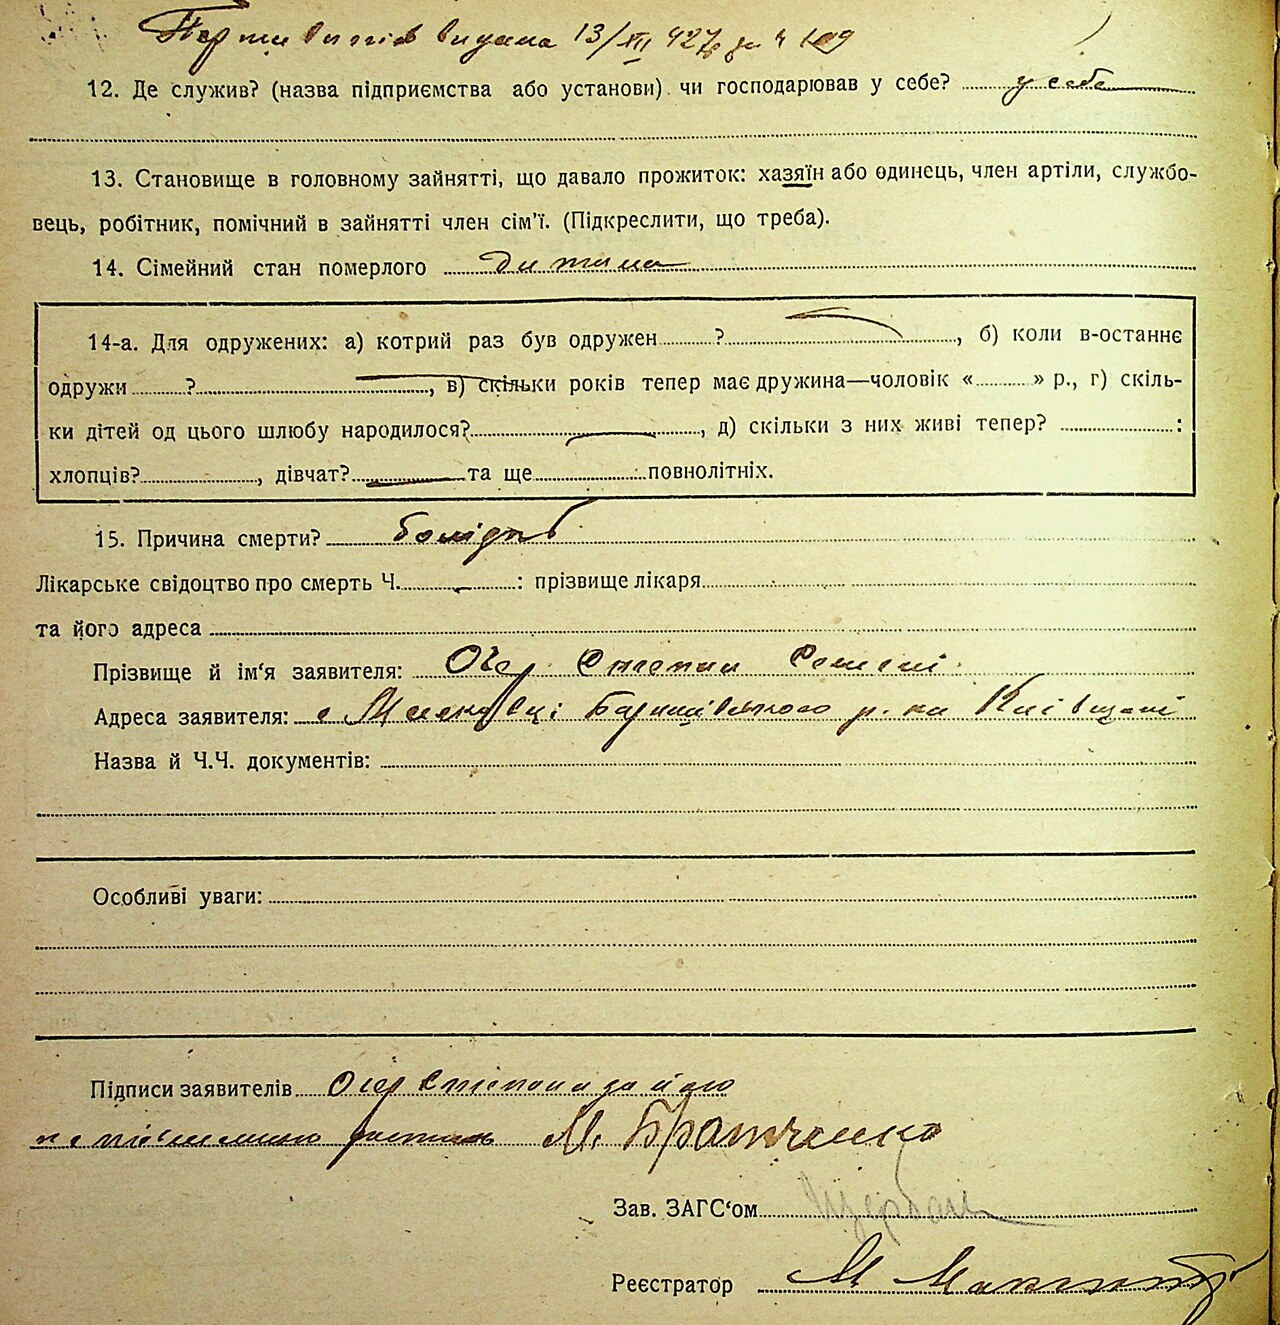 витяг видана 13/XII 927 р за ч 109
12. Де служив? (назва підприємства або установи) чи господарював у себе? у себе
13. Становище в головному зайнятті, що давало прожиток: хазяїн або одинець, член артіли, службо-
вець, робітник, помічний в зайнятті член сім'ї. (Підкреслити, що треба).
14. Сімейний стан померлого дитина
14-а. Для одружених: а) котрий раз був одружен ? , б) коли в-останнє
одружи ? , в) скільки років тепер має дружина—чоловік « » р., г) скіль-
ки дітей од цього шлюбу народилося? , д) скільки з них живі тепер? :
хлопців? , дівчат? та ще повнолітніх.
15. Причина смерти?
Лікарське свідоцтво про смерть Ч. : прізвище лікаря
та його адреса
Прізвище й ім'я заявителя: Степан
Адреса заявителя: с Баришівського р-на Київщині
Назва й Ч.Ч. документів:
Особливі уваги:
Підписи заявителів Степан а за його
М. Братченко
Зав. ЗАГС'ом Щербак
Реєстратор М